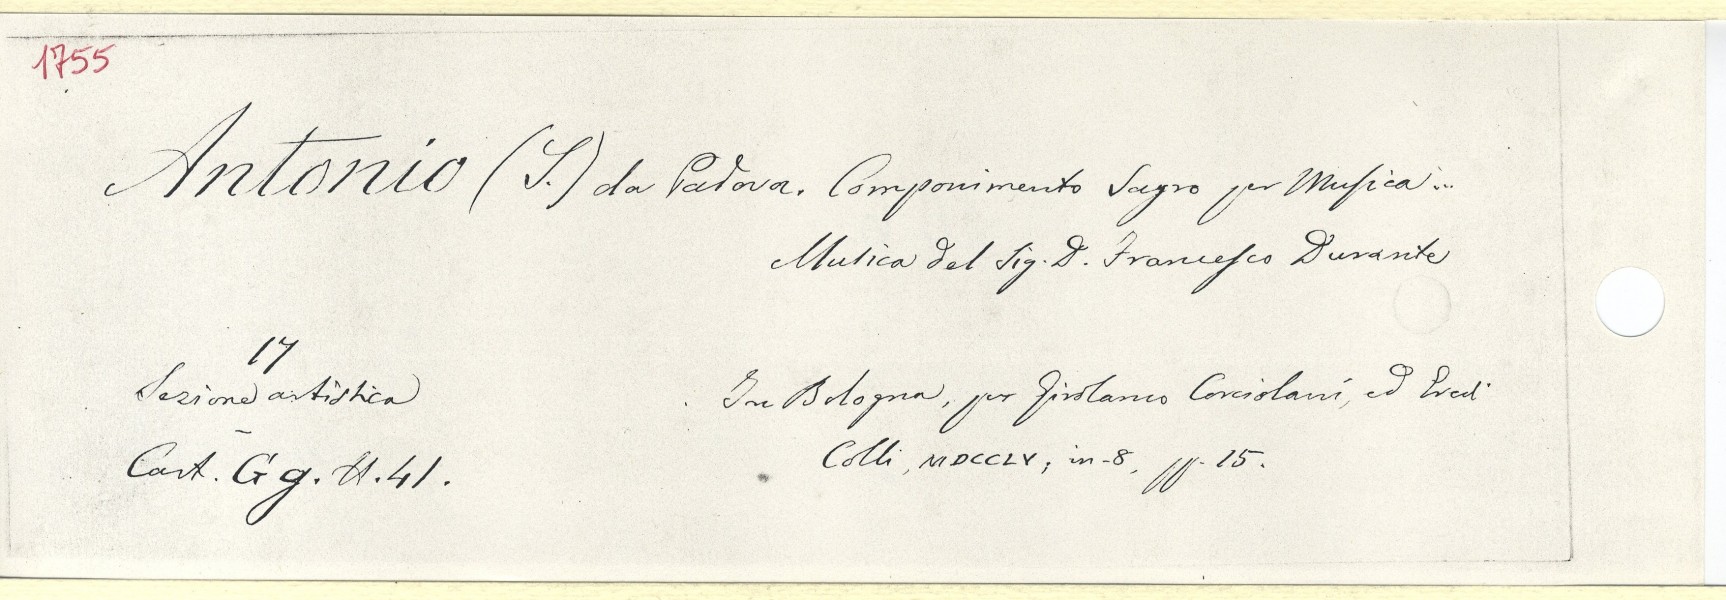 1755
Antonio (S.) da Padova. Componimento Sagro per Musica...
Musica del Sig. D. Francesco Durante
17
Sezione artistica
In Bologna, per Girolamo Corciolani, ed Eredi
Cart. Gg. H. 41.
Colli, MDCCLV; in-8, pp. 15.